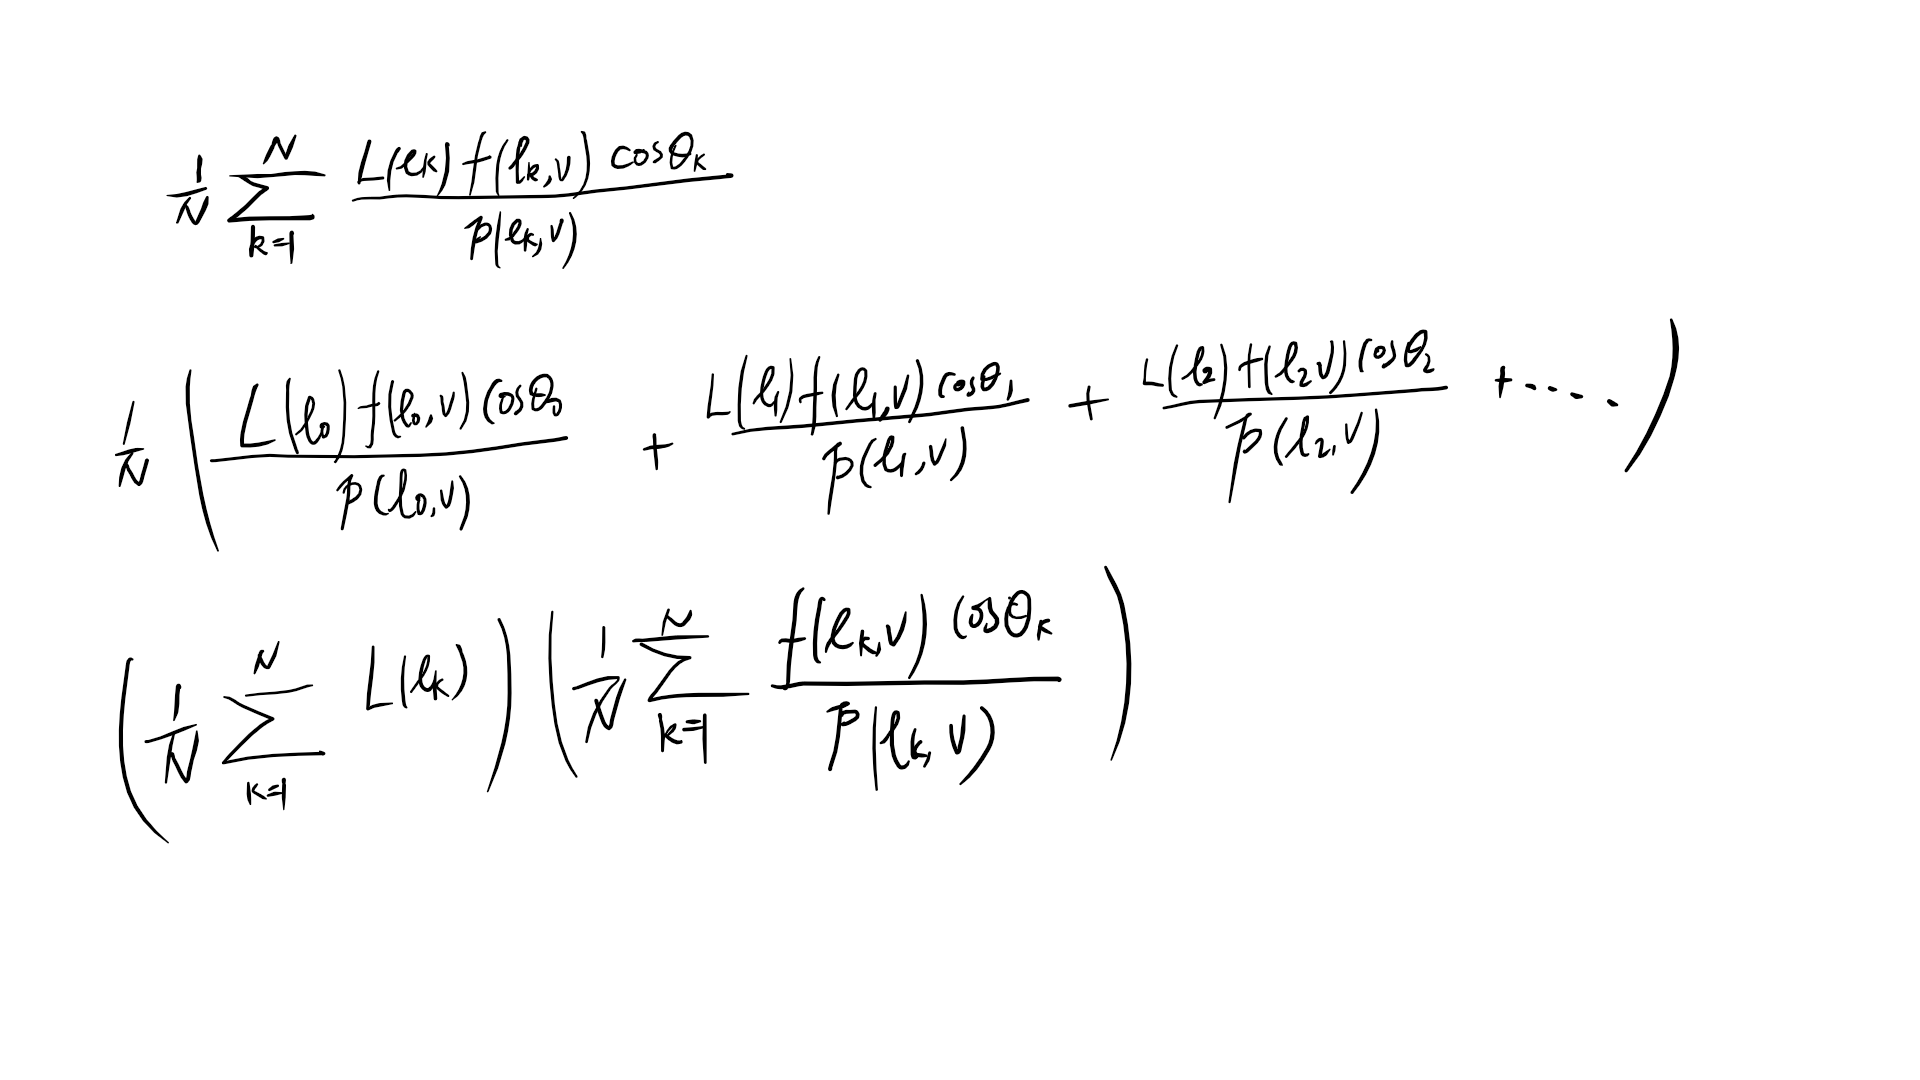 $\frac{1}{N} \sum_{k=1}^{N} \frac{L(l_k) f(l_k, v) \cos\theta_k}{p(l_k, v)}$
$\frac{1}{N} \left( \frac{L(l_0) f(l_0, v) \cos\theta_0}{p(l_0, v)} + \frac{L(l_1) f(l_1, v) \cos\theta_1}{p(l_1, v)} + \frac{L(l_2) f(l_2 v) \cos\theta_2}{p(l_2, v)} + \cdots\cdot\cdot \right)$
$\left( \frac{1}{N} \sum_{k=1}^{N} L(l_k) \right) \left( \frac{1}{N} \sum_{k=1}^{N} \frac{f(l_k, v) \cos\theta_k}{p(l_k, v)} \right)$